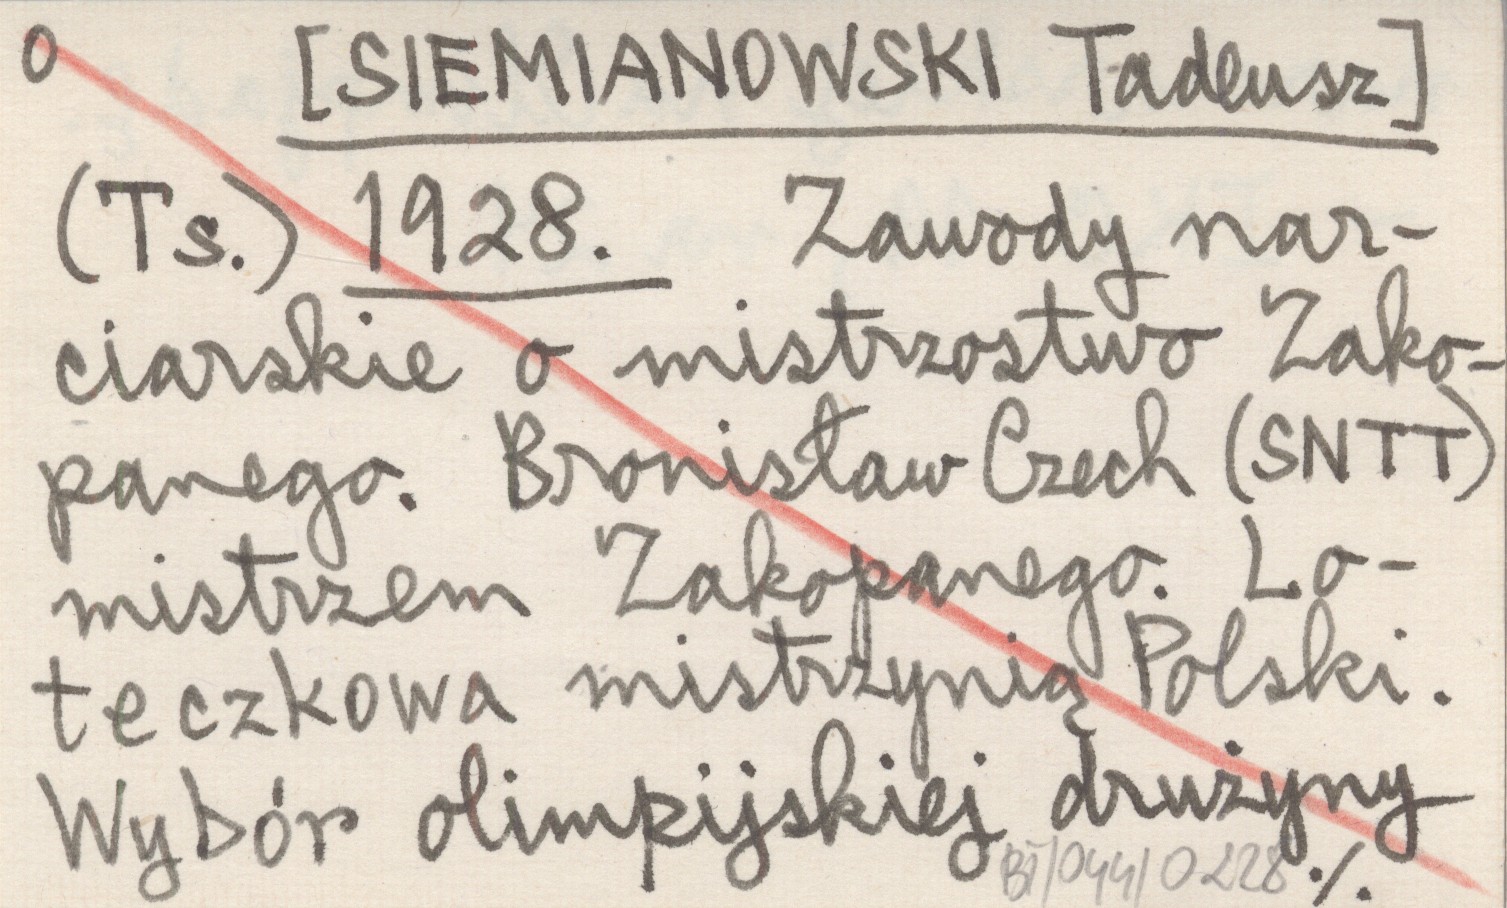 o [SIEMIANOWSKI Tadeusz]
(Ts.) 1928. Zawody nar-
ciarskie o mistrzostwo Zako-
panego. Bronisław Czech (SNTT)
mistrzem Zakopanego. Lo-
teczkowa mistrzynią Polski.
Wybór olimpijskiej drużyny
BŁ/044/0228 ./.